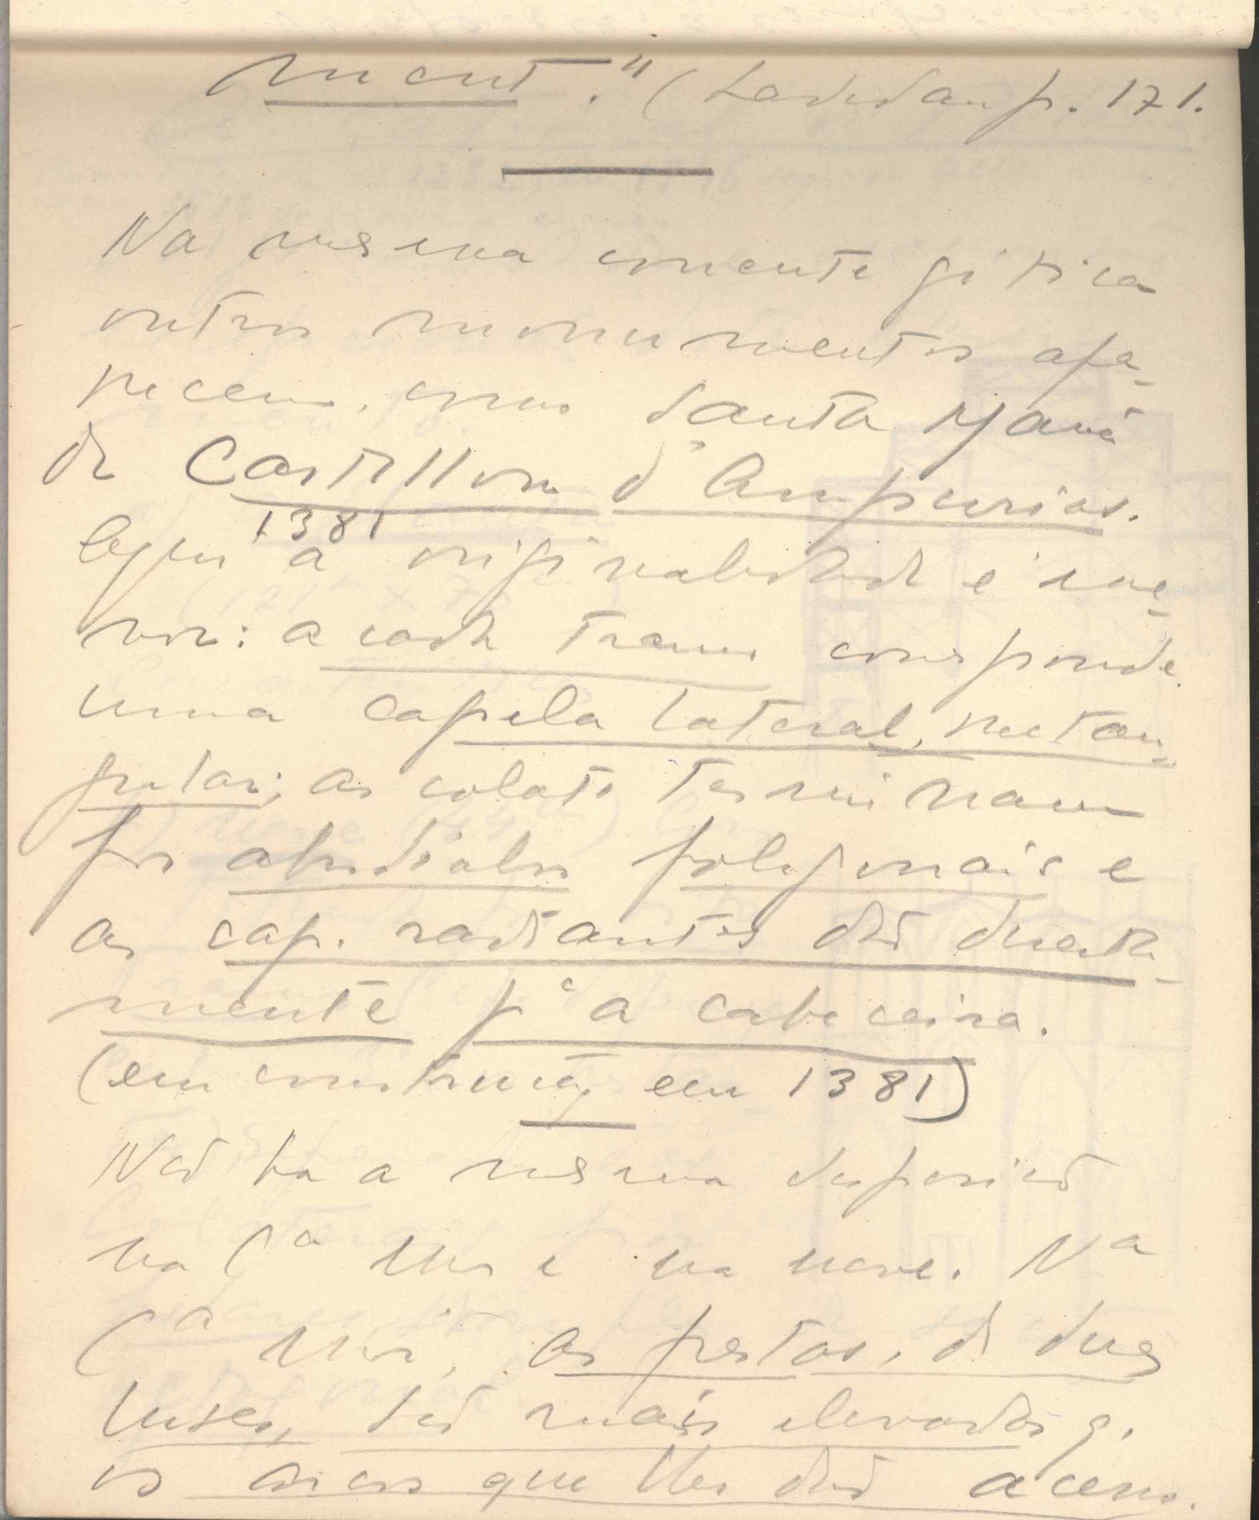 ment." (Lavedan p. 171.
Na mesma corrente gótica
outros monumentos apa-
recem, como Santa Maria
de Castillon d'Ampurias.
1381
Aqui a originalidade é me-
nor: a cada tramo corresponde
uma capela lateral, rectan-
gular; as colate terminam
por absidíolos poligonais e
as cap. radiantes dão directa-
mente pª a cabeceira.
(em construção em 1381)
Não ha a mesma disposição
na Cª Mor e na nave. Na
Cª Mor, as frestas, de duas
luses, são mais elevadas q.
os arcos que lhes dão acesso.